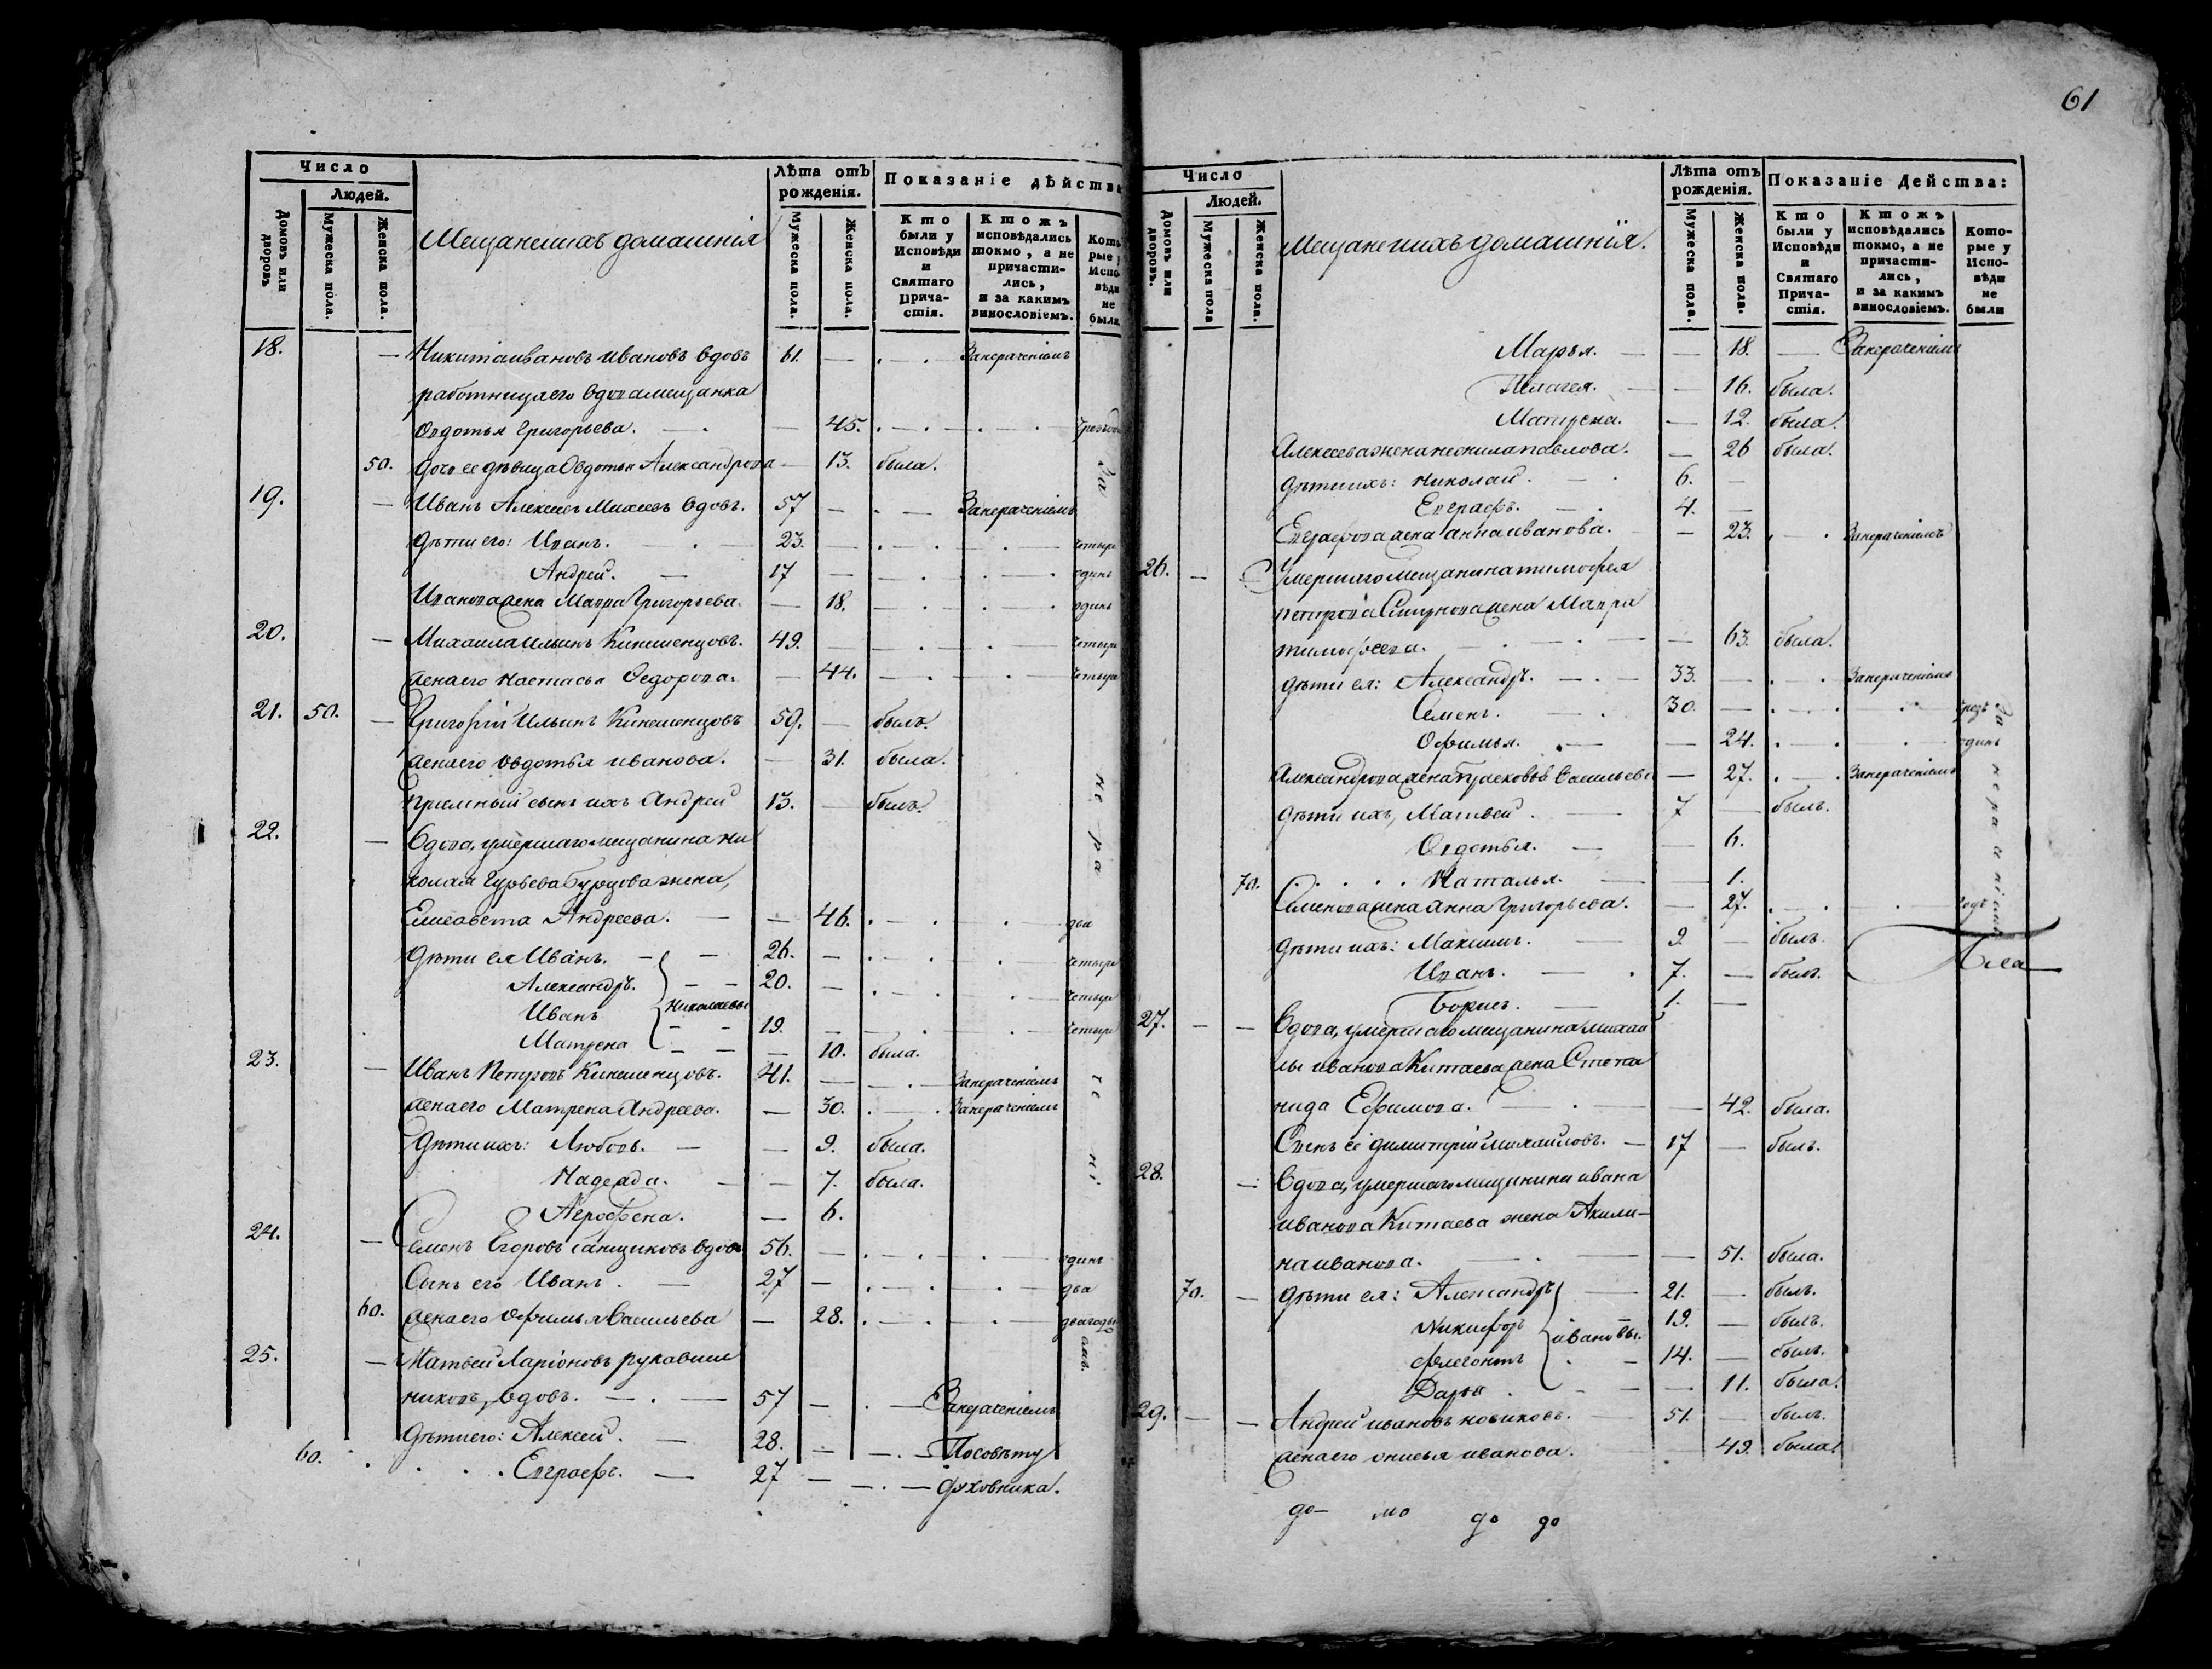 61
Число
Людей.
Домовъ или дворовъ
Мужеска пола.
Женска пола.
Мещане ихъ домашнія
Лѣта отъ рожденія.
Мужеска пола.
Женска пола.
Показаніе дѣйства
Кто были у Исповѣди и Святаго Прича-стія.
Ктожъ исповѣдались токмо, а не причасти-лись, и за какимъ винословіемъ.
Кото рые у Испо вѣди не были
18. — Никита Ивановъ Ивановъ вдовъ 61. — . . За нераченіемъ
работница его вдова мещанка
Овдотья Григорьева. — 45.
50. дочь ее дѣвица Овдотья Александрова — 13. была.
19. — Иванъ Алексеевъ Михеевъ вдовъ. 57 — . — За нераченіемъ
дѣти его: Иванъ. 23. четыре
Андрей. — 17 — одинъ
Иванова жена Мавра Григорьева. — 18. одинъ
20. — Михаила Ильинъ Кинешенцовъ. 49. четыре
жена его Настасья Федорова. — 44. четыре
21. 50. — Григорій Ильинъ Кинешенцовъ 59. — былъ.
жена его Овдотья Иванова. — 31. была.
пріемный сынъ ихъ Андрей 13. — былъ.
22. — Вдова, умершаго мещанина Ни
колая Гурьева Бурцова жена,
Елисавета Андреева. — — 46. два
дѣти ея Иванъ. — — 26. — четыре
Александръ. — — 20. — четыре
Иванъ Николаевы — — 19. — четыре
Матрена — — — 10. была.
23. — Иванъ Петровъ Кинешенцовъ. 41. — — . За нераченіемъ
жена его Матрена Андреева. — 30. . — . За нераченіемъ
дѣти ихъ: Любовь. — — 9. была.
Надежда. — — 7. была.
Агрофена. — 6.
24. — Семенъ Егоровъ вдовъ 56. — одинъ
Сынъ его Иванъ. — 27 — два
60. жена его Офимья Васильева — 28. два года
25. — Матвей Ларіоновъ Рукавиш
никовъ, вдовъ. — . — 57 — . — За нераченіемъ
дѣти его: Алексей. — 28. — — . — По совѣту
60. . . . . Евграфъ. — 27 — — . — духовника.
За не ра че ні емъ.
Число
Людей.
Домовъ или дворовъ.
Мужеска пола
Женска пола.
Мещане ихъ домашнія.
Лѣта отъ рожденія.
Мужеска пола.
Женска пола.
Показаніе Дѣйства:
Кто были у Исповѣди и Святаго Прича-стія.
Ктожъ исповѣдались токмо, а не причасти-лись, и за какимъ винословіемъ.
Кото-рые у Испо-вѣди не были
Марья. — — 18. — За нераченіемъ
Пелагея. — — 16. была.
Матрена. — 12. была.
Алексеева жена Неонила Павлова. — 26 была.
дѣти ихъ: Николай. — . 6. —
Евграфъ. — . 4. —
Евграфова жена Анна Иванова. — 23. . — . За нераченіемъ
26. — Умершаго мещанина Тимофея
Петрова жена Мавра
Тимофеева. — 63. была.
дѣти ея: Александръ. — . — 33. — . . За нераченіемъ
Семенъ. — . 30. —
Офимья. . — — 24. одинъ
Александрова жена Прасковья Васильева — 27. . — . За нераченіемъ
дѣти ихъ, Матвей. — 7 — былъ.
Овдотья. — — 6.
70. . . . . . Наталья. — — 1.
Семенова жена Анна Григорьева. — 27. годъ
дѣти ихъ: Максимъ. — 9. — былъ.
Иванъ. — . 7. — былъ.
Борисъ. — 1. —
За нераченіемъ
27. — — Вдова, умершаго мещанина Михаи
лы Иванова Китаева жена Степа
нида Ефимова. — . — — 42. была.
Сынъ ее Димитрій Михайловъ. — 17 — былъ.
28. — Вдова, умершаго мещанина Ивана
Иванова Китаева жена Акили-
на Иванова. — . — — 51. была.
70. — дѣти ея: Александръ — 21. — былъ.
Никифоръ Ивановы. — 19. — былъ.
Флегонтъ . — 14. — былъ.
Дарья . — — — 11. была.
29. — — Андрей Ивановъ Новиковъ. — 51. — былъ.
жена его Онисья Иванова. 49. была.
до- мо до до